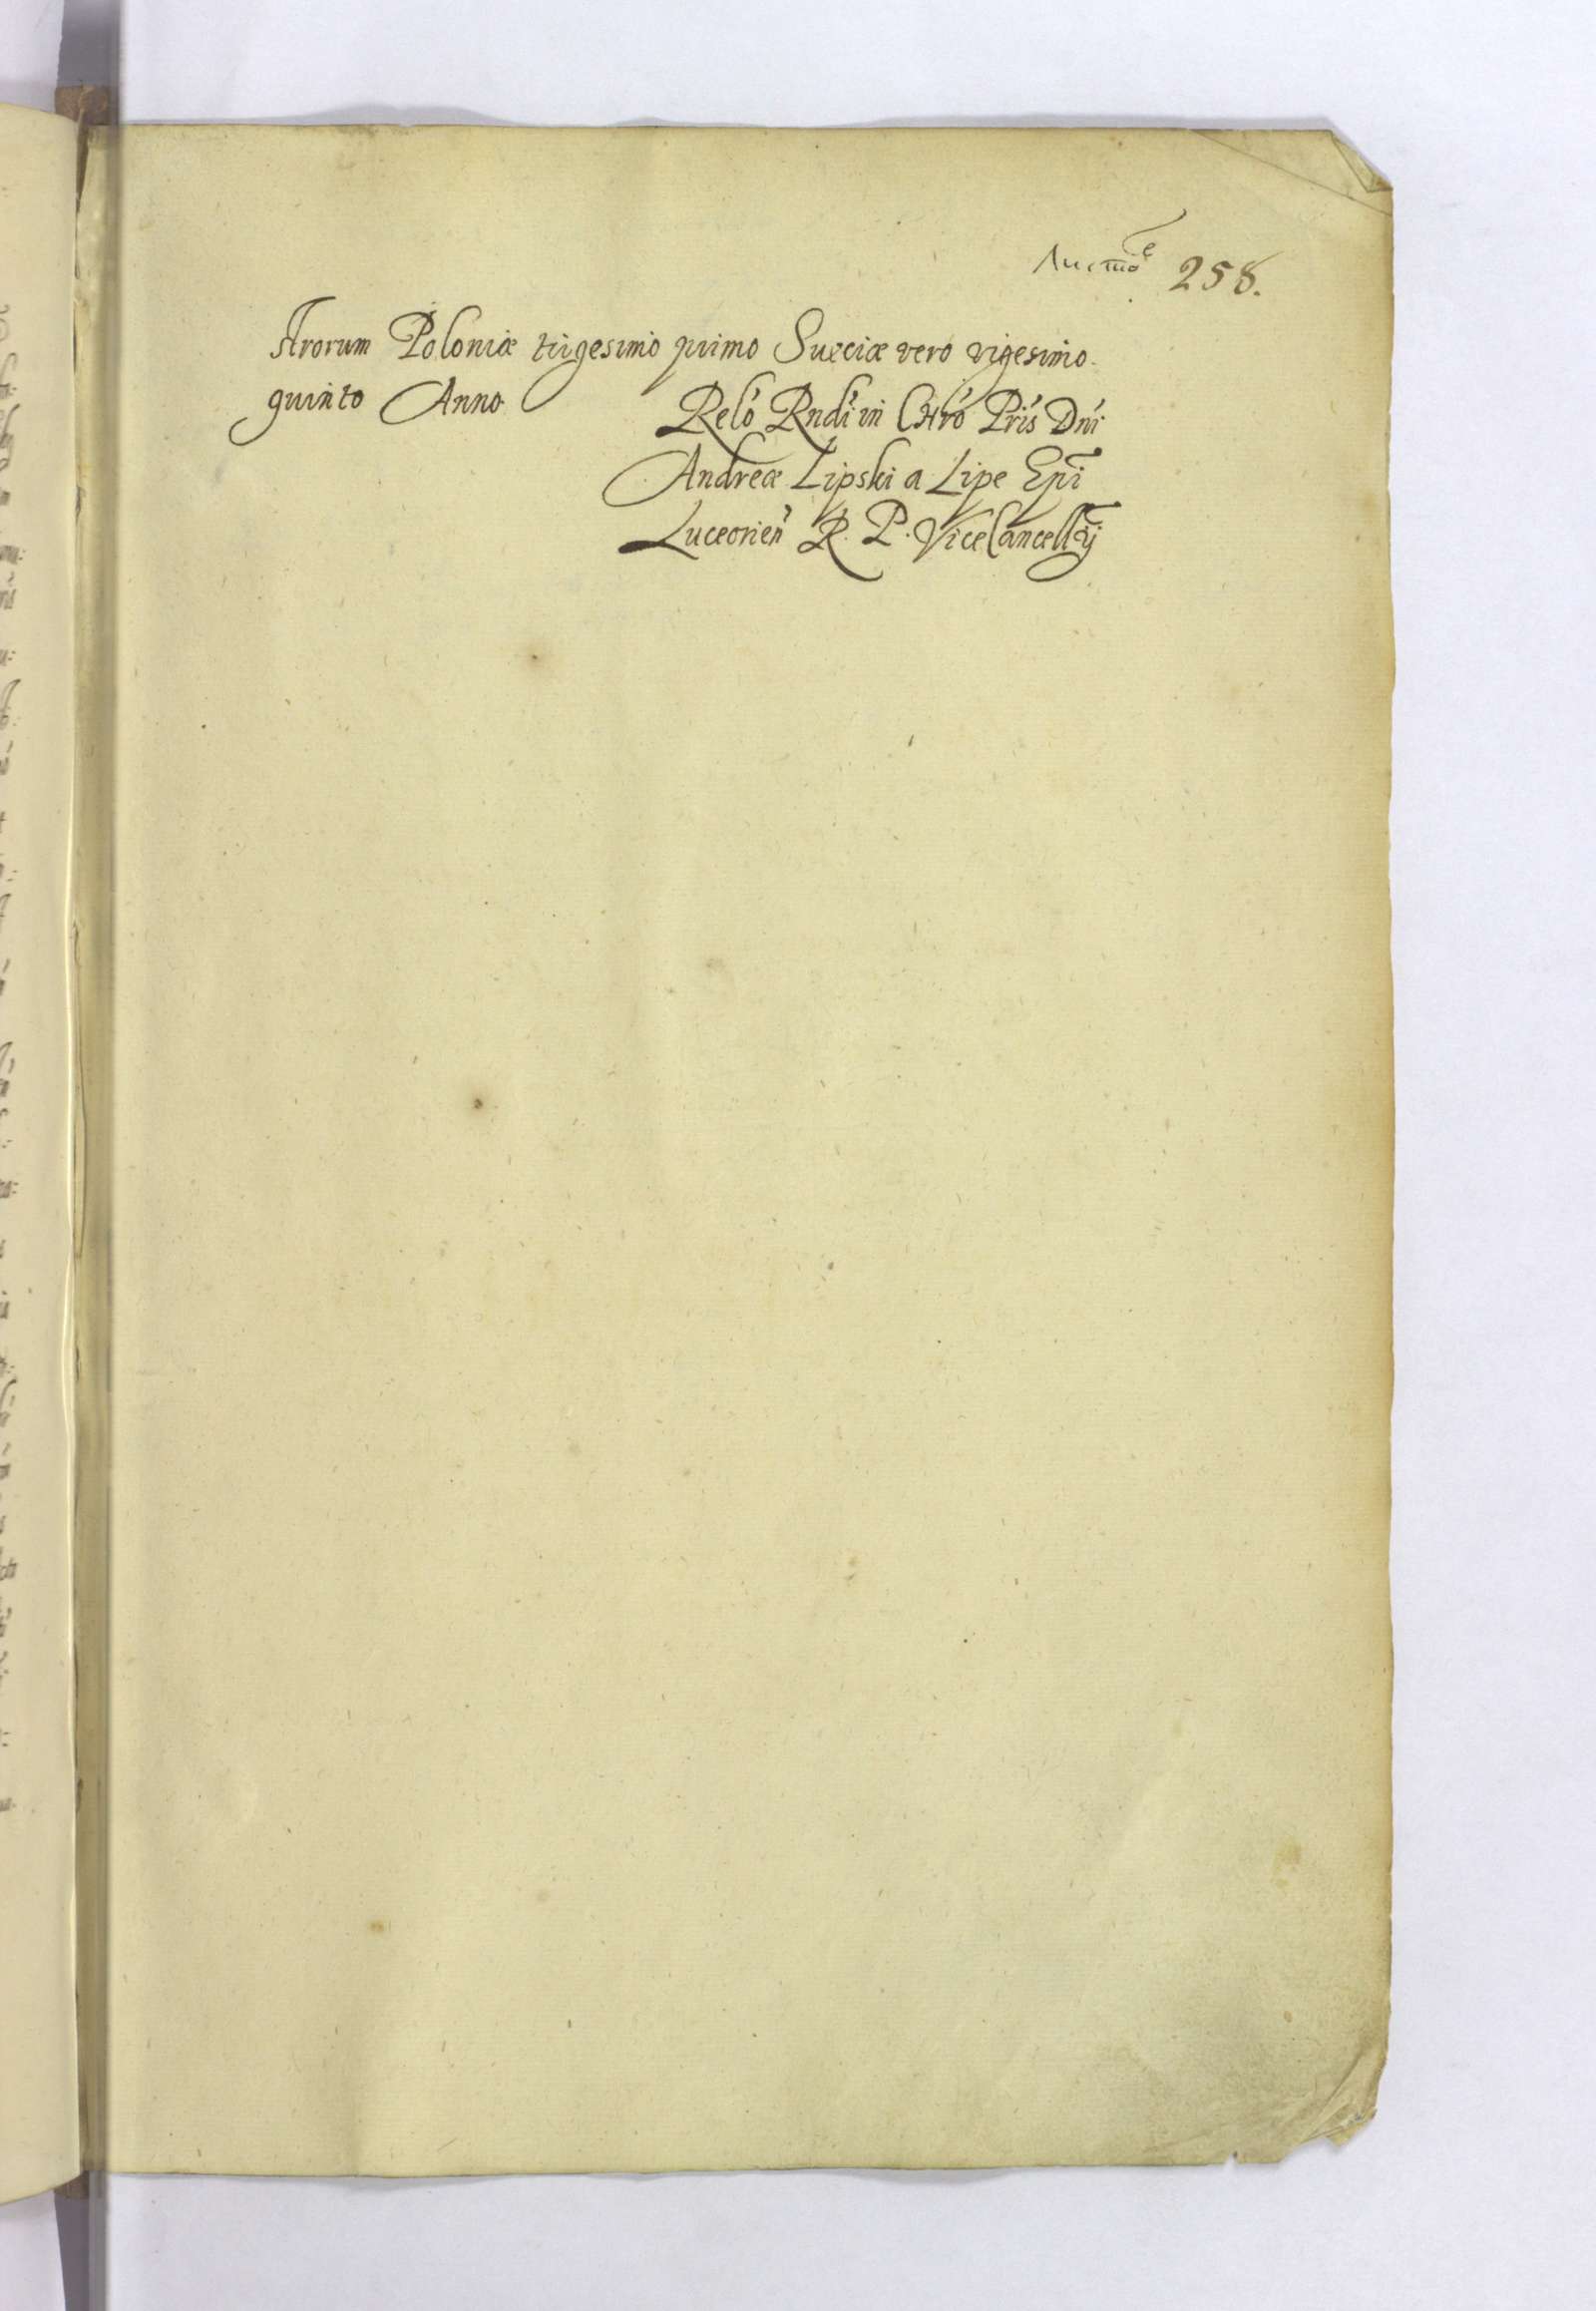 Листо͏ⷷ 258.
Nrorum Poloniæ trigesimo primo Sueciæ vero vigesimo
quinto Anno
Relo Rndi in Chro Pris Dni
Andreæ Lipski a Lipe Epi
Luceorien R. P. ViceCancellrij